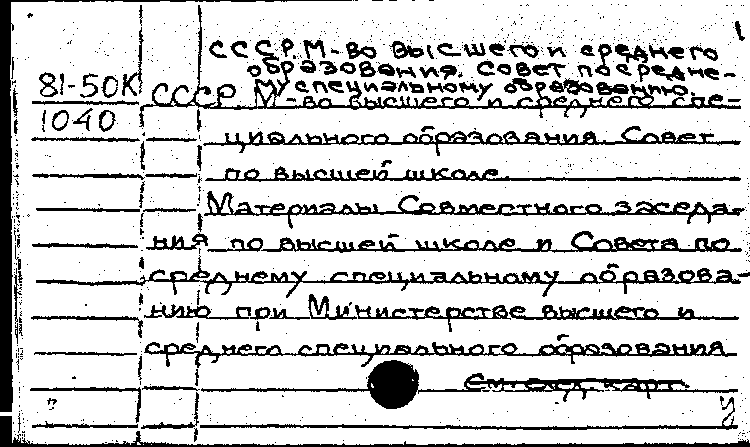 1
СССР М-во высшего и среднего
образования. Совет по средне-
му специальному образованию.
81-50К
1040
СССР М-во высшего и среднего спе-
циального образования. Совет
по высшей школе.
Материалы Совместного заседа-
ния по высшей школе и Совета по
среднему специальному образова-
нию при Министерстве высшего и
среднего специального образования
См. след. карт.
у